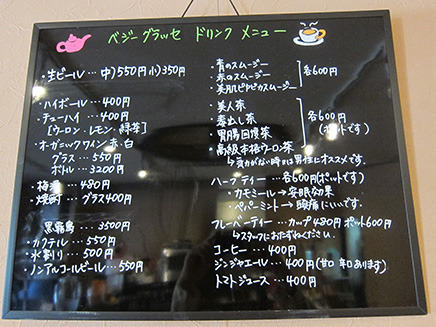 ベジーグラッセ ドリンク メニュー
・生ビール … 中)550円 小)350円
・ハイボール … 400円
・チューハイ … 400円
[ウーロン・レモン・緑茶]
・オーガニックワイン 赤・白
グラス … 550円
ボトル … 3200円
・梅酒 … 480円
・焼酎 … グラス400円
黒霧島 … 3500円
・カクテル … 550円
・水割り … 500円
・ノンアルコールビール … 550円
・青のスムージー
・赤のスムージー
・美肌ピカピカスムージー
各600円
・美人茶
・毒出し茶
・胃腸回復茶
・高級本格ウーロン茶
各600円
(ポットです)
↳元気がない時は男性にオススメです。
ハーブティー … 各600円(ポットです)
・カモミール → 安眠効果
・ペパーミント → 頭痛にいいです。
フレーバーティー … カップ480円 ポット600円
↳スタッフにおたずねください。
コーヒー … 400円
ジンジャエール … 400円(甘口 辛口あります)
トマトジュース … 400円